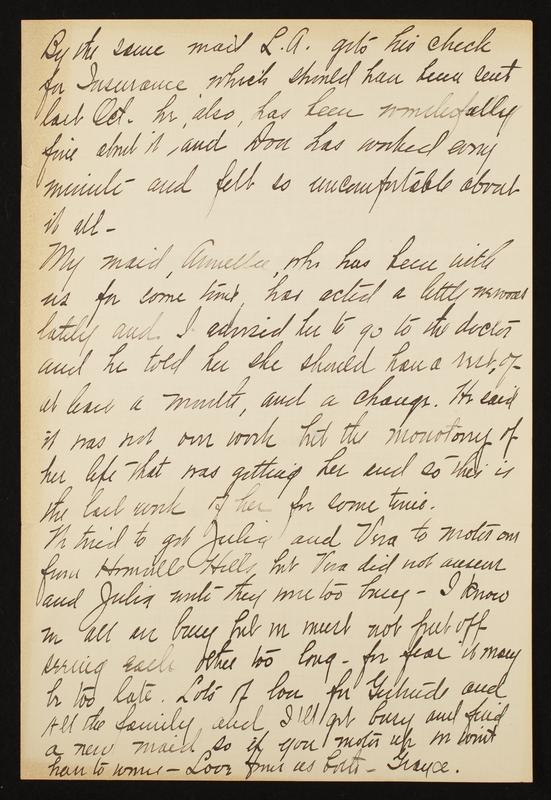 By the same mail L.A. gets his check
for Insurance which should have been sent
last Oct. he, also, has been wonderfully
fine about it, and Don has worked every
minute and felt so uncomfortable about
it all -
My maid, who has been with
us for some time, has acted a little nervous
lately and I advised her to go to the doctor
and he told her she should have a rest, of
at least a month, and a change. He said
it was not our work but the monotony of
her life that was getting her and so this is
the last week of her for some time.
We tried to get Julia and Vera to motor over
from Hills, but Vera did not answer
and Julia wrote they were too busy - I know
we all are busy but we must not put off
seeing each other too long - for fear it may
be too late. Lots of love for Gertrude and
all the family and I'll get busy and find
a new maid so if you motor up we won't
have to worry - Love from us both - Grayce.